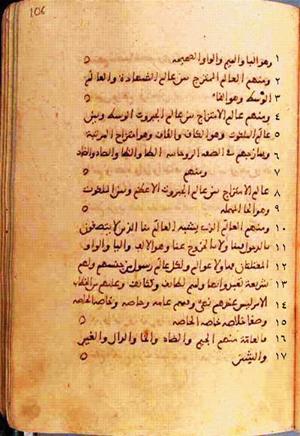 106
١ وهو البا والميم والواو الصحيحه
٢ ومنهم العالم الممتزج بين عالم الشهادة والعالم
٣ الوسط وهو الفاء
٤ ومنهم عالم الامتزاج بين عالم الجبروت الوسط وبين
٥ عالم الملكوت وهو الكاف والقاف وهو امتزاج المرتبة
٦ ويمازجهم في الصفه الروحانيه الطا والظا والصاد والضاد
٧ ومنهم
٨ عالم الامتزاج بين عالم الجبروت الاعظم وبين الملكوت
٩ وهو الحا المهمله
١٠ ومنهم العالم الذي يشبه العالم منا الذين لا يتصفون
١١ بالدخول فينا ولا بالخروج عنا وهو الالف واليا والواو
١٢ المعتلتان فهاولا عوالم ولكل عالم رسول من جنسهم ولهم
١٣ شريعة تعبدوا بها ولهم لطايف وكثايف وعليهم من الخطاب
١٤ الامر ليس عندهم نهي وفيهم عامه وخاصه وخاصه الخاصه
١٥ وصفا خلاصه خاصه الخاصه
١٦ فالعامه منهم الجيم والضاد والخا والدال والغين
١٧ والشين